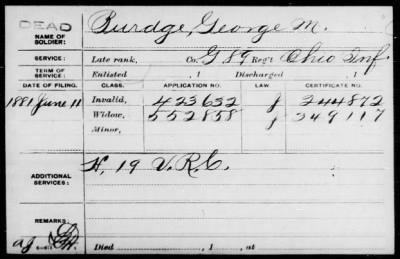 DEAD
NAME OF SOLDIER: Burdge, George M.
SERVICE: Late rank, Co. G 89 Reg't Ohio Inf.
TERM OF SERVICE: Enlisted , 1 Discharged , 1
DATE OF FILING. CLASS. APPLICATION NO. LAW CERTIFICATE NO.
1881 June 11 Invalid, 423632 J 244872
Widow, 552858 J 349117
Minor,
ADDITIONAL SERVICES: H, 19 V.R.C.
REMARKS:
Died , 1 , at